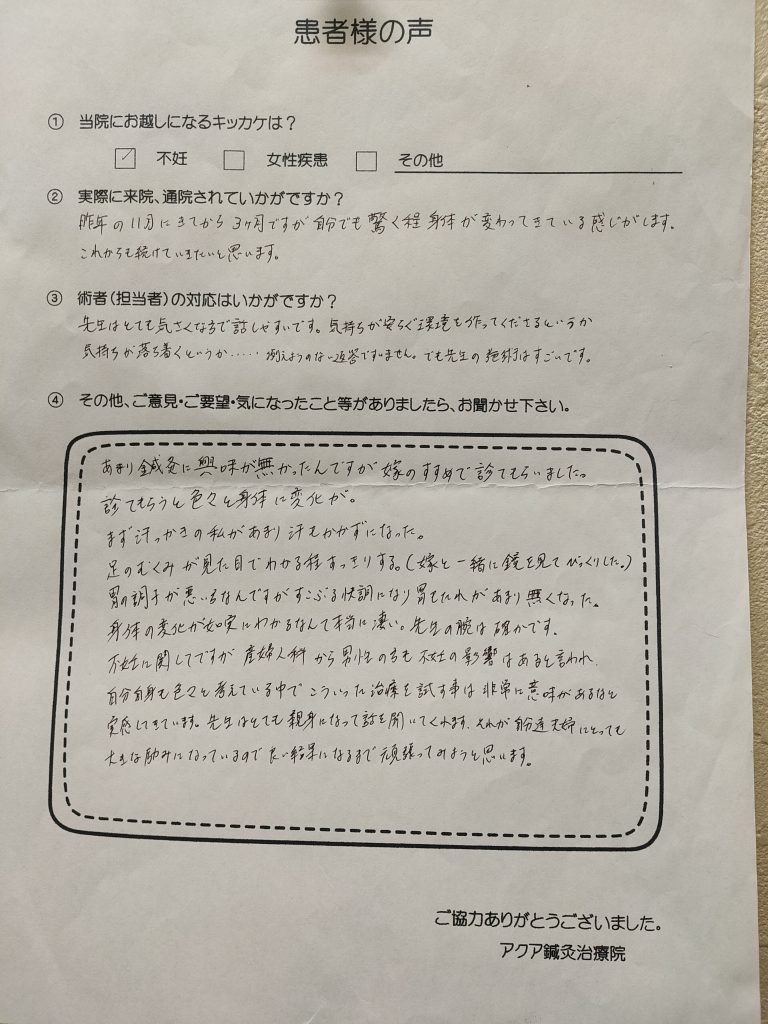 患者様の声
① 当院にお越しになるキッカケは？
☑ 不妊 □ 女性疾患 □ その他
② 実際に来院、通院されていかがですか？
昨年の11月にきてから3ヶ月ですが自分でも驚く程身体が変わってきている感じがします。
これからも続けていきたいと思います。
③ 術者（担当者）の対応はいかがですか？
先生はとても気さくな方で話しやすいです。気持ちが安らぐ環境を作ってくださるというか
気持ちが落ち着くというか‥‥‥例えようのない返答ですいません。でも先生の施術はすごいです。
④ その他、ご意見・ご要望・気になったこと等がありましたら、お聞かせ下さい。
あまり鍼灸に興味が無かったんですが嫁のすすめで診てもらいました。
診てもらうと色々と身体に変化が。
まず汗っかきの私があまり汗もかかずになった。
足のむくみが見た目でわかる程すっきりする。（嫁と一緒に鏡を見てびっくりした。）
胃の調子が悪い方なんですがすこぶる快調になり胃もたれがあまり無くなった。
身体の変化が如実にわかるなんて本当に凄い。先生の腕は確かです。
不妊に関してですが産婦人科から男性の方も不妊の影響はあると言われ、
自分自身も色々と考えている中でこういった治療を試す事は非常に意味があるなと
実感してきています。先生はとても親身になって話を聞いてくれます。それが自分達夫婦にとっても
大きな励みになっているので良い結果になるまで頑張ってみようと思います。
ご協力ありがとうございました。
アクア鍼灸治療院